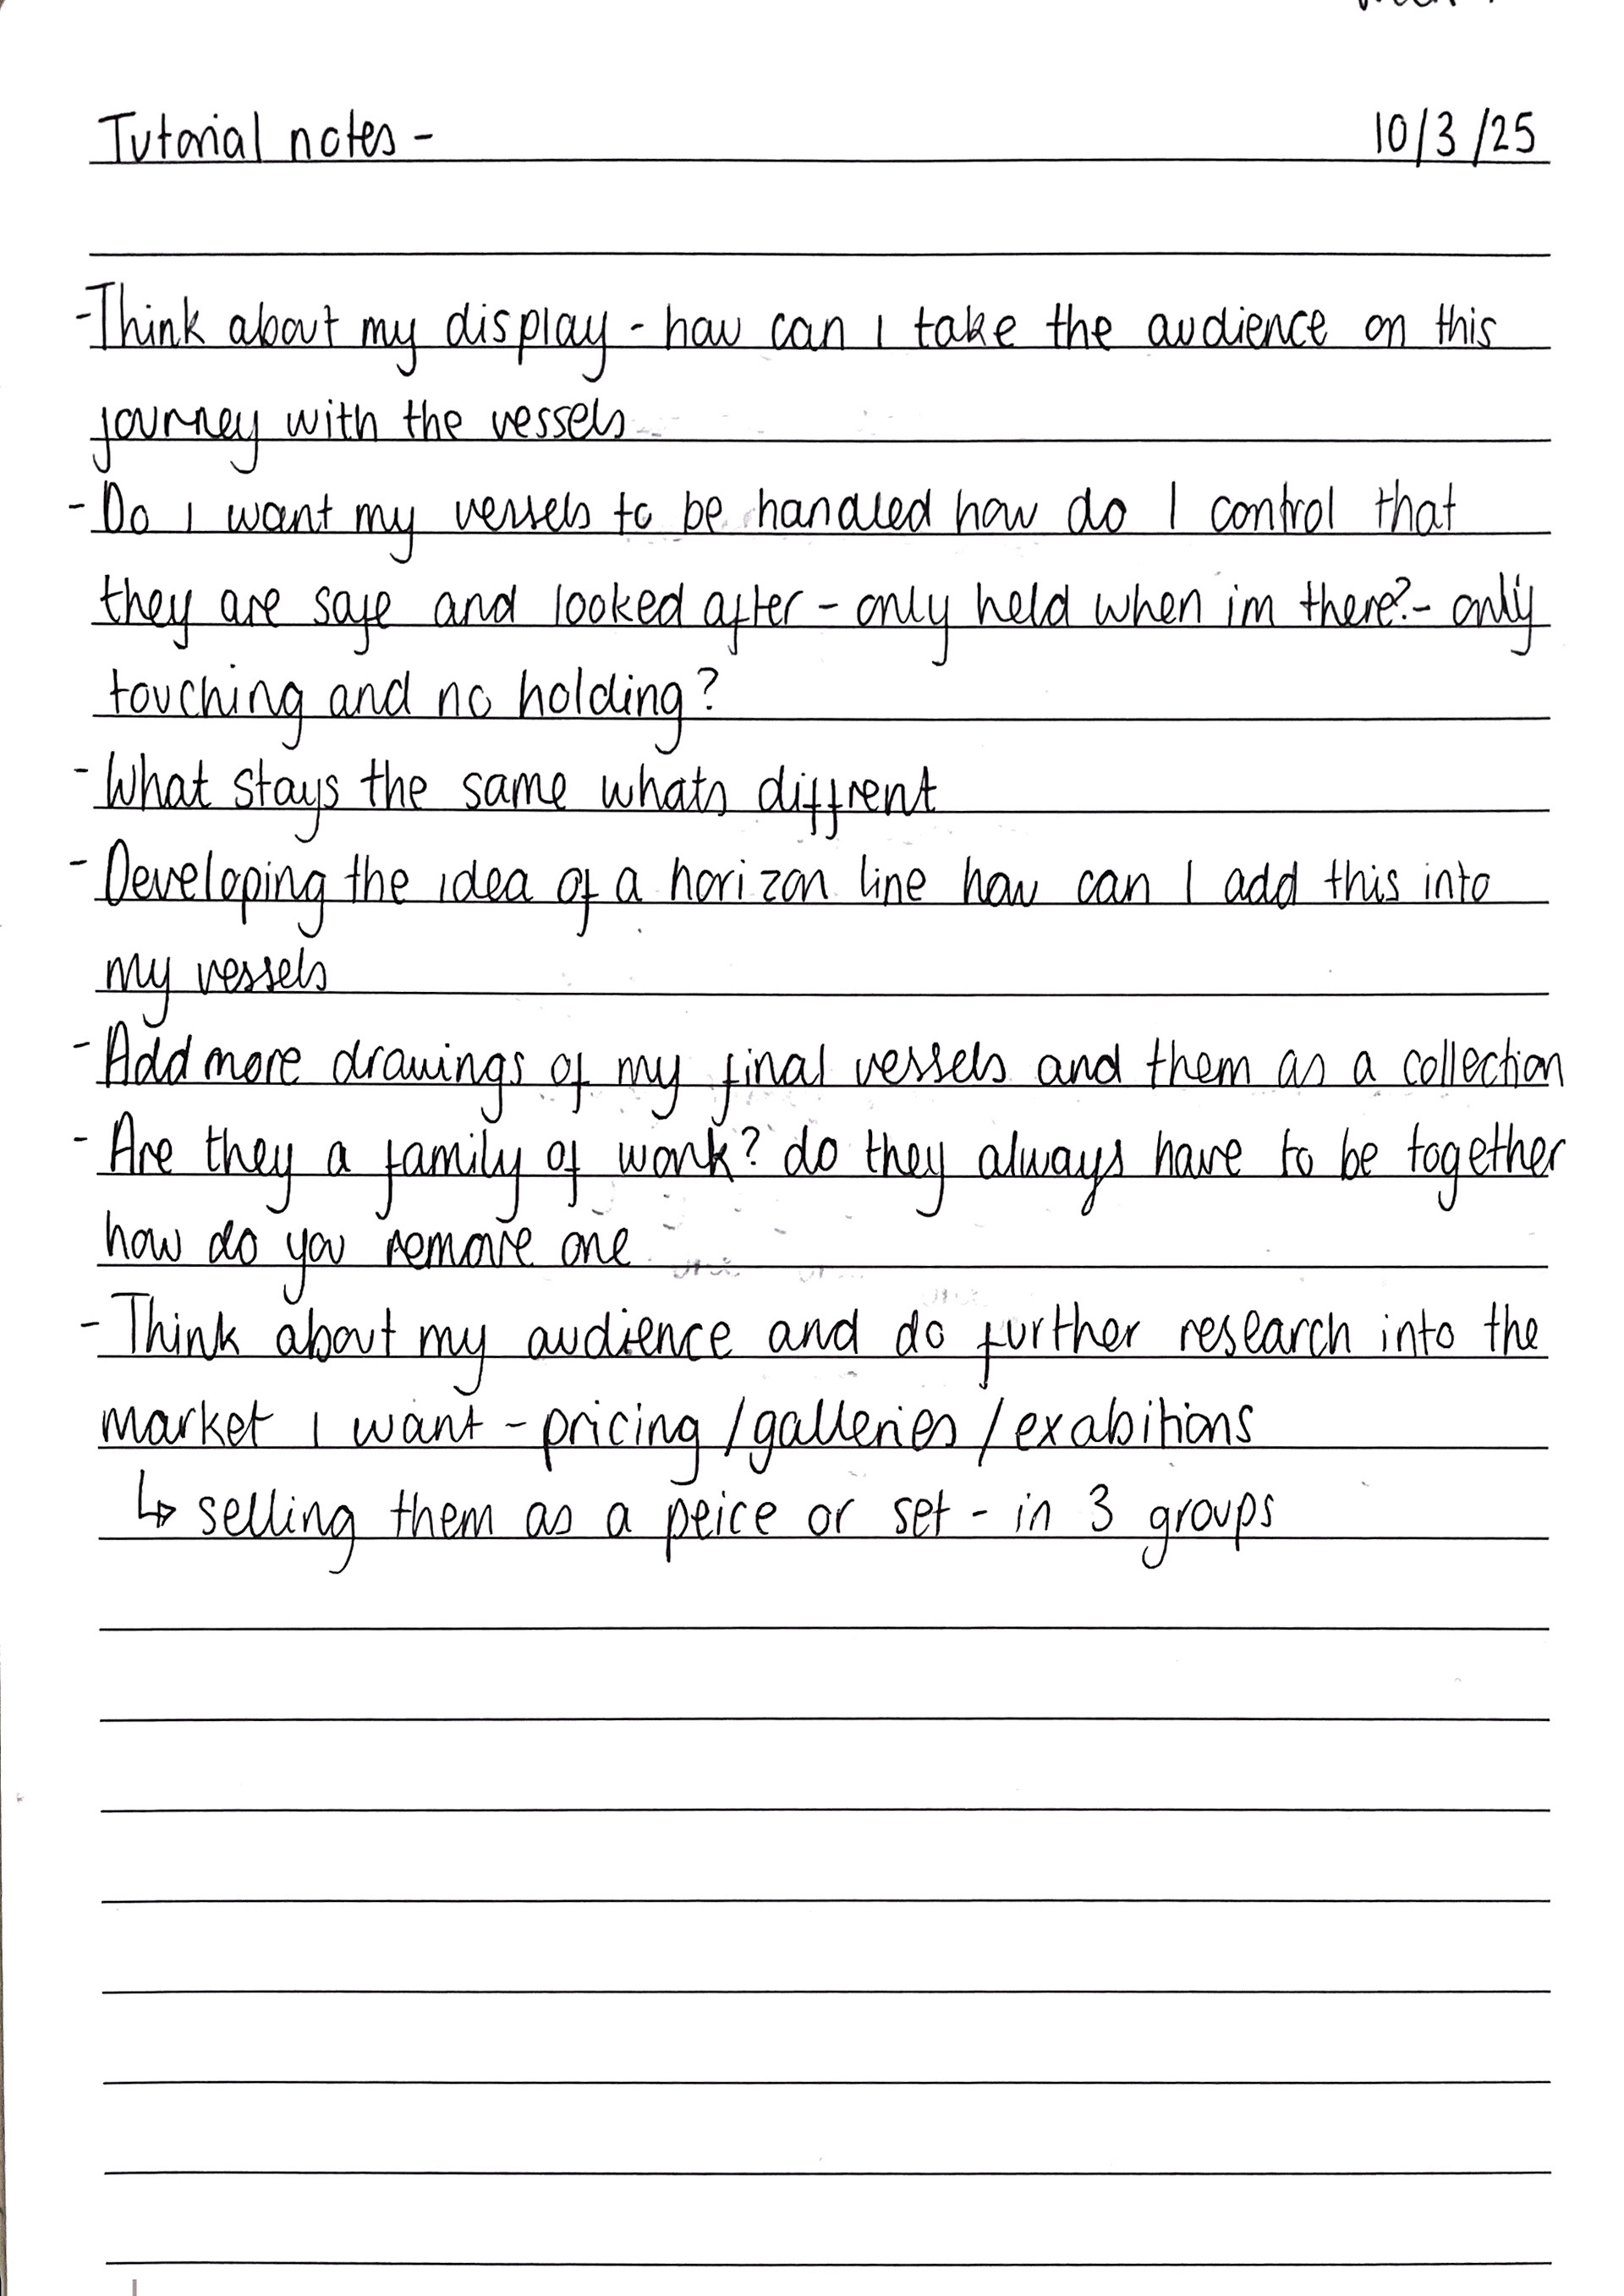 Tutorial notes - 10/3/25
-Think about my display - how can I take the audience on this
journey with the vessels
- Do I want my vessels to be handled how do I control that
they are safe and looked after - only held when im there? - only
touching and no holding?
- What stays the same whats diffrent
- Developing the idea of a horizon line how can I add this into
my vessels
- Add more drawings of my final vessels and them as a collection
- Are they a family of work? do they always have to be together
how do you remove one
- Think about my audience and do further research into the
market I want - pricing / galleries / exabitions
↳ selling them as a peice or set - in 3 groups